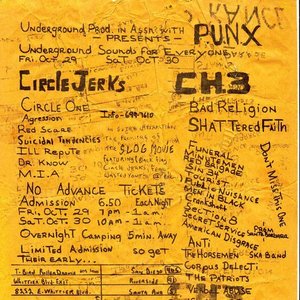 Underground Prod. in Assn. with
- PRESENTS -
PUNX
Underground Sounds for Everyone
Fri. Oct 29 Sat. Oct 30
CIRCLE JERKS
CH.3
CIRCLE ONE
Info-699-1610
Agression
Red Scare
Suicidal Tendencies
Ill Repute
Dr. Know
M.I.A
THE
SLOG MOVIE
BAD RELIGION
SHATTERED FAITH
FUNERAL
RED BEMEE
SIN 34
PUBLIC NUISANCE
MEN IN BLACK
CRANKSHAFT
SECTION 8
SECRET SERVICE
AMERICAN DISGRACE
Don't Miss This One
NO ADVANCE TICKETS
Admission 6.50 Each Night
Fri. Oct 29 7 pm - 1 a.m.
Sat. Oct 30 10 am - 1 a.m.
Overnight Camping 5 min. Away
Limited Admission so get
There early...
ANTI
THE HORSEMEN SKA BAND
CORPUS DELECTI
THE PATRIOTS
VERBAL ABUSE
T. Bird Roller Drome
San Diego
WHITTIER BLVD. EXIT
Riverside
8253 E. WHITTIER BLVD.
Santa Ana